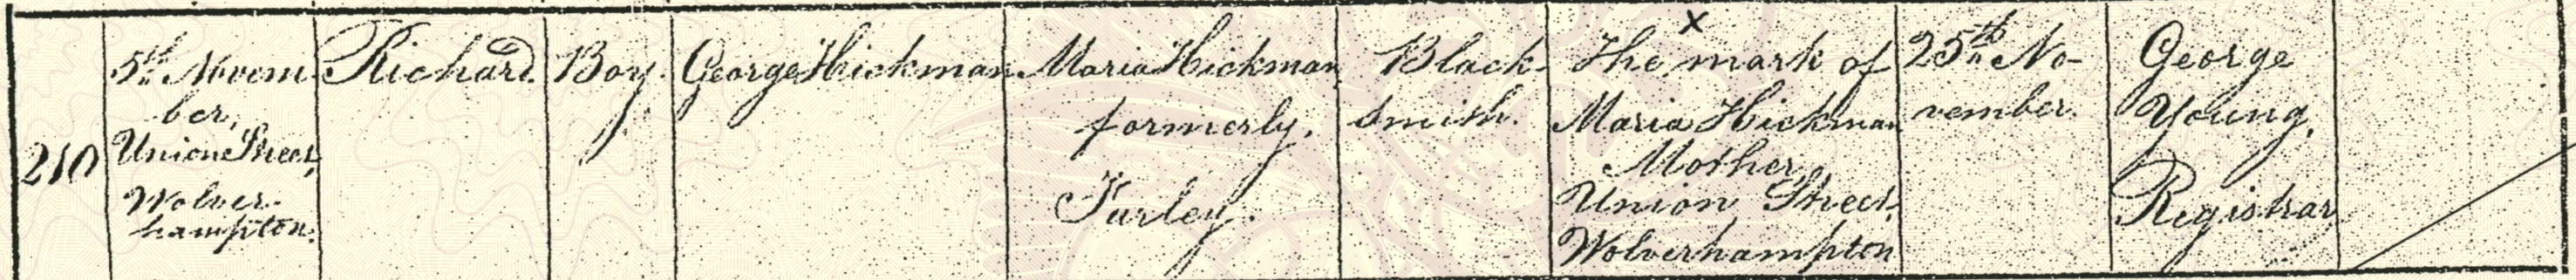 210
5th Novem
ber,
Union Street,
Wolver-
hampton.
Richard.
Boy.
George Hickman
Maria Hickman,
formerly.
Turley.
Black-
smith.
X
The mark of
Maria Hickman
Mother,
Union Street,
Wolverhampton
25th No-
vember.
George
Young,
Registrar